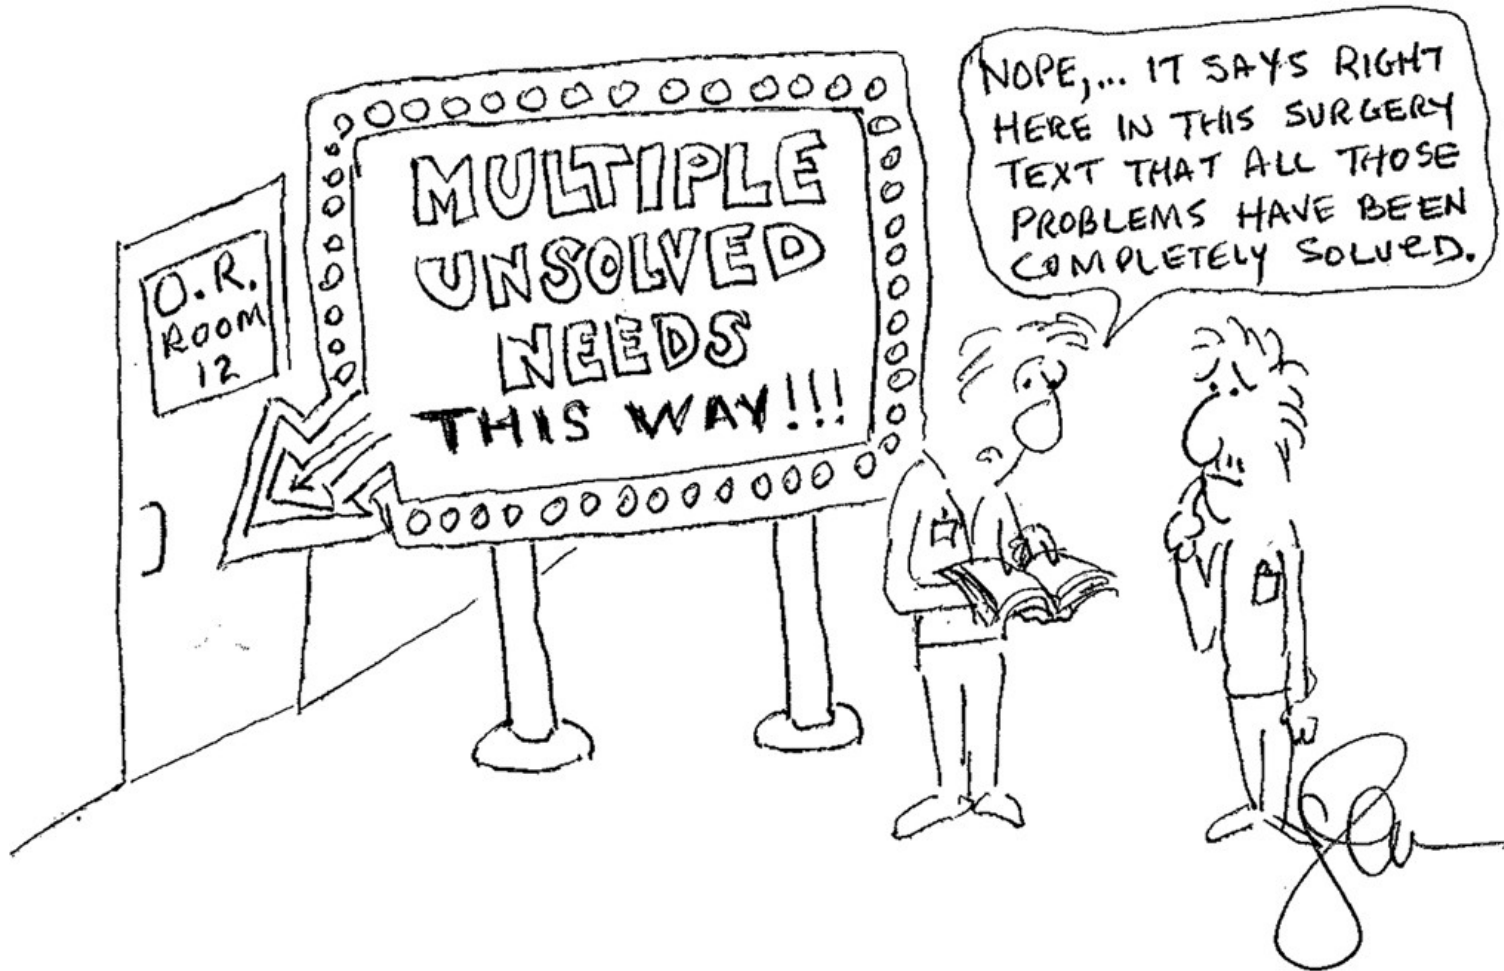 O.R.
ROOM
12
MULTIPLE
UNSOLVED
NEEDS
THIS WAY!!!
NOPE,... IT SAYS RIGHT
HERE IN THIS SURGERY
TEXT THAT ALL THOSE
PROBLEMS HAVE BEEN
COMPLETELY SOLVED.